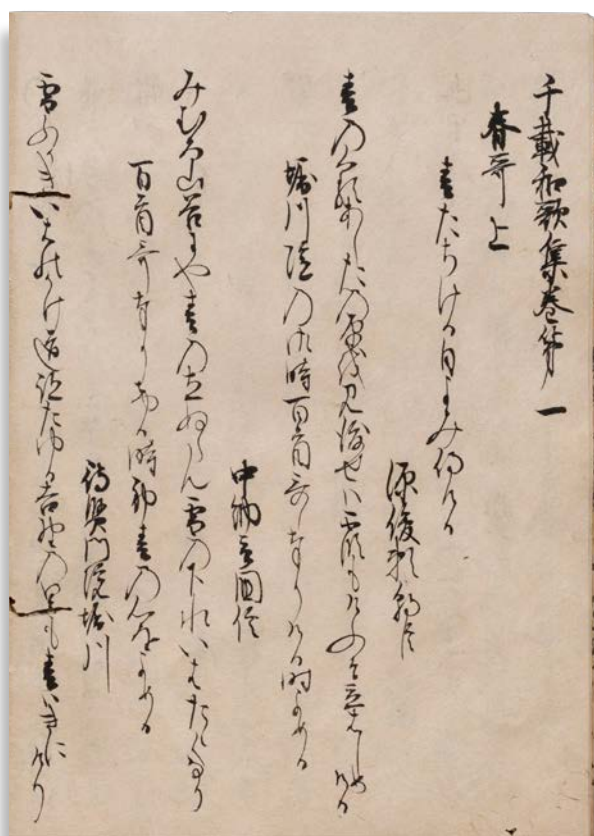 千載和歌集巻第一
春哥上
春たちける日よみ侍ける
源俊頼朝臣
春のくるあしたの原を見渡せは霞もけふそ立はしめける
堀川院の御時百首哥奉りける時よめる
中納言国信
みむろ山谷にや春の立ぬらん雪の下水いはたゝくなり
百首哥奉りける時初春の心をよめる
待賢門院堀川
雪ふかきいはのかけ道跡たゆる吉野の里も春はきにけり